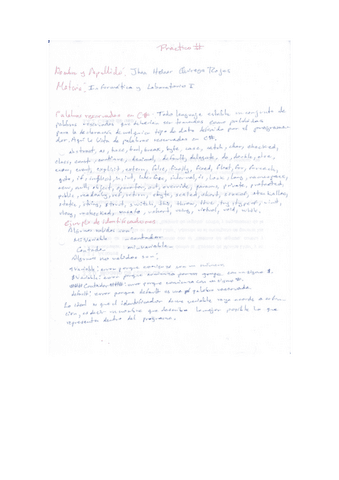 Practica #
Nombre y Apellido: Jhon
Materia: Informatica y Laboratorio I
Palabras reservadas en C#: Todo lenguaje establece un conjunto de
palabras reservadas que no
para la declaracion de cualquier tipo de dato definido por el programa-
dor. Aqui la lista de palabras reservadas en C#.
abstract, as, base, bool, break, byte, case, catch, char, checked,
class, const, continue, decimal, default, delegate, do, double, else,
enum, event, explicit, extern, false, finally, fixed, float, for, foreach,
goto, if, implicit, in, int, interface, internal, is, lock, long, namespace,
new, null, object, operator, out, override, params, private, protected,
public, readonly, ref, return, sbyte, sealed, short, sizeof, stackalloc,
static, string, struct, switch, this, throw, true, try, typeof, uint,
ulong, unchecked, unsafe, ushort, using, virtual, void, while.
Ejemplo de Identificadores
Algunos validos son:
Mi Variable contador
Contador mi_variable
Algunos no validos son:
Variable: error porque comienza con un numero
$Variable: error porque comienza con un signo $.
###Contador###: error porque comienza con el signo #.
default: error porque default es una palabra reservada.
Lo ideal es que el identificador de una variable
es decir un nombre que describa lo mejor posible lo que
representa dentro del programa.